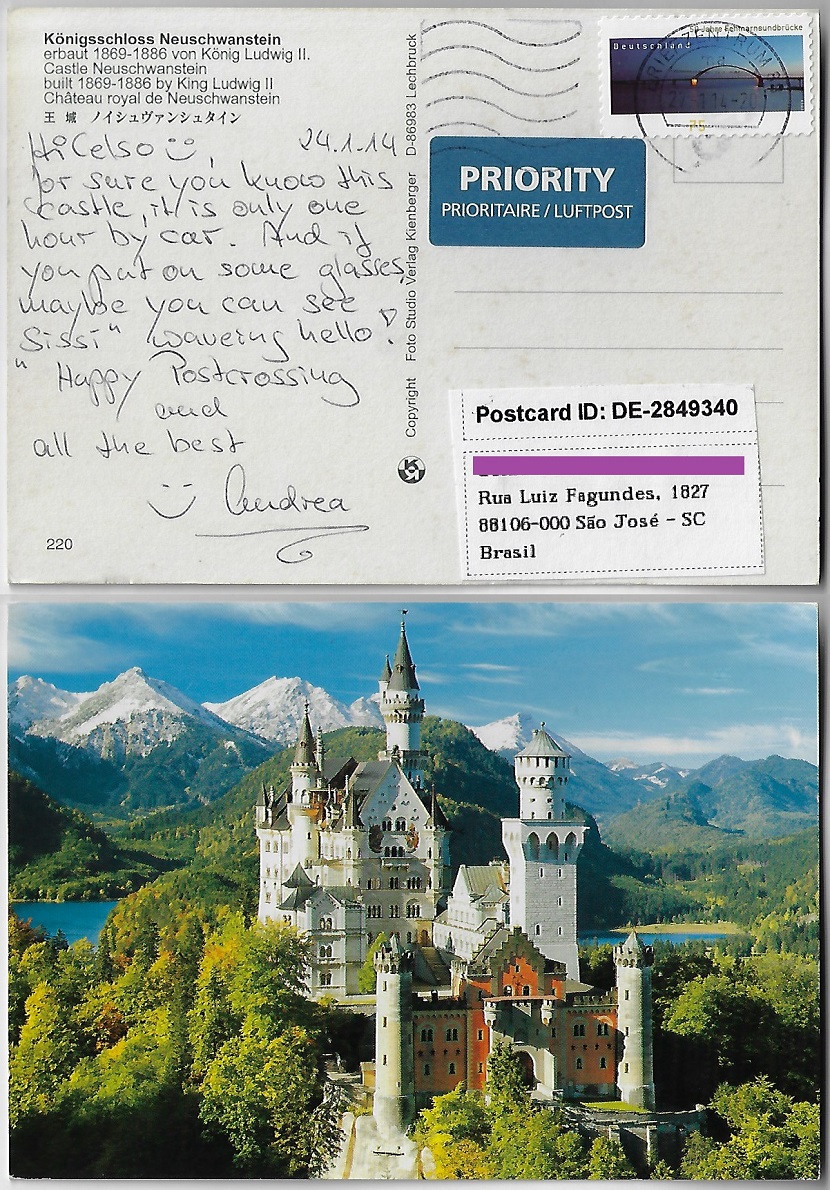 Königsschloss Neuschwanstein
erbaut 1869-1886 von König Ludwig II.
Castle Neuschwanstein
built 1869-1886 by King Ludwig II
Château royal de Neuschwanstein
王 城 ノイシュヴァンシュタイン
Hi Celso☺, 24.1.14
for sure you know this
castle, it is only one
hour by car. And if
you put on some glasses,
maybe you can see
Sissi" waveing hello!
" Happy Postcrossing
and
all the best
Andrea
220
Copyright Foto Studio Verlag Kienberger D-86983 Lechbruck
50 Jahre Fehmarnsundbrücke
Deutschland
75
BRIEFZENTRUM
PRIORITY
PRIORITAIRE / LUFTPOST
Postcard ID: DE-2849340
Rua Luiz Fagundes, 1827
88106-000 São José - SC
Brasil